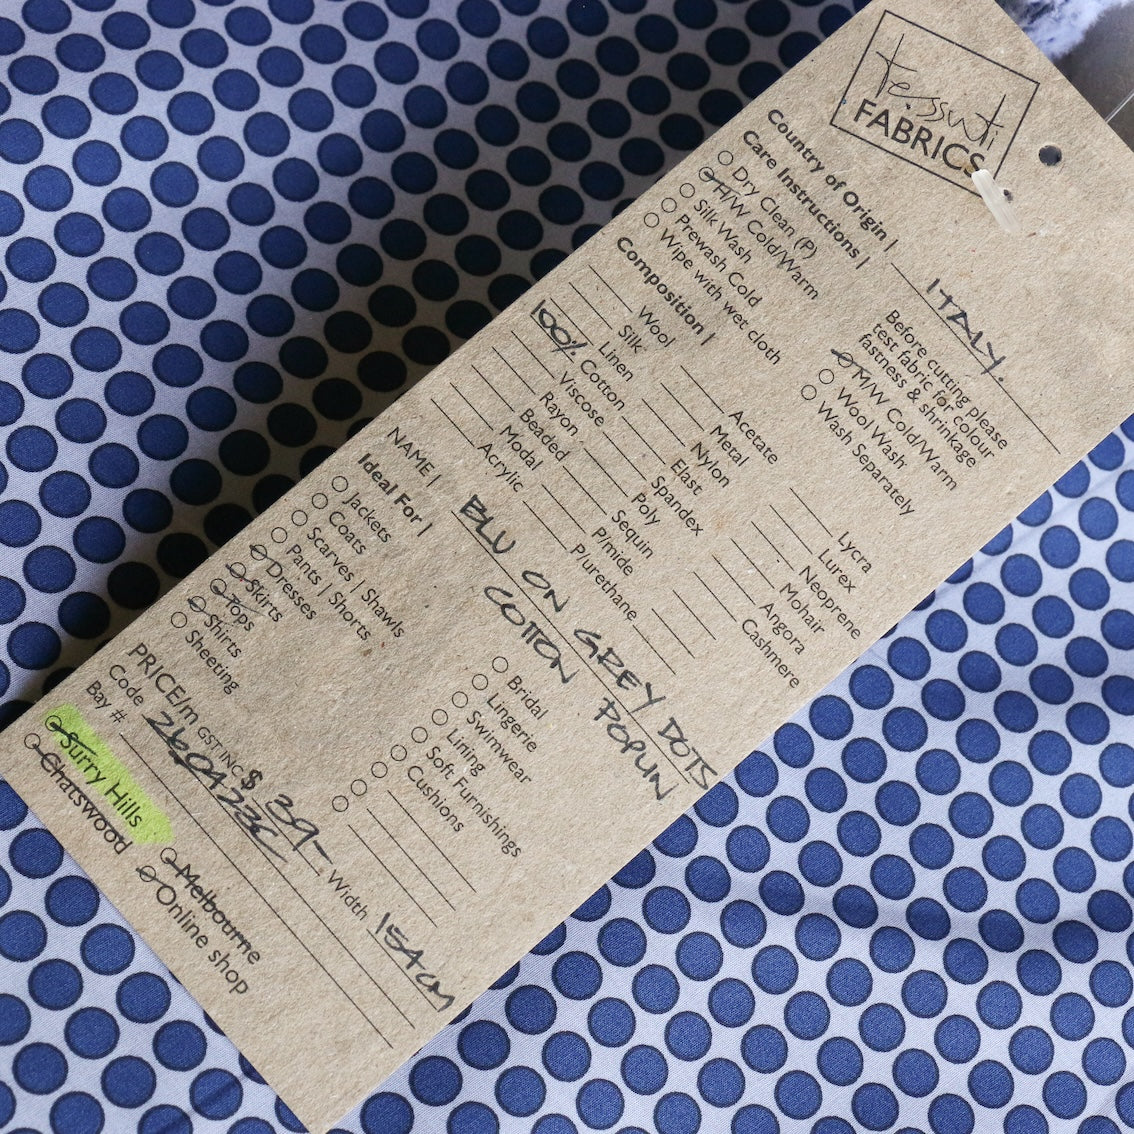 tessuti
FABRICS
Country of Origin | ITALY.
Care Instructions |
Dry Clean (P)
H/W Cold/Warm
Silk Wash
Prewash Cold
Wipe with wet cloth
Before cutting please
test fabric for colour
fastness & shrinkage
M/W Cold/Warm
Wool Wash
Wash Separately
Composition |
Wool
Silk
Linen
100% Cotton
Viscose
Rayon
Beaded
Modal
Acrylic
Acetate
Metal
Nylon
Elast
Spandex
Poly
Sequin
P/mide
Purethane
Lycra
Lurex
Neoprene
Mohair
Angora
Cashmere
NAME | BLU ON GREY DOTS
COTTON POPLIN
Ideal For |
Jackets
Coats
Scarves | Shawls
Pants | Shorts
Dresses
Skirts
Tops
Shirts
Sheeting
Bridal
Lingerie
Swimwear
Lining
Soft Furnishings
Cushions
PRICE/m GST INC $ 39- Width 154cm
Code
Bay #
Surry Hills
Chatswood
Melbourne
Online shop